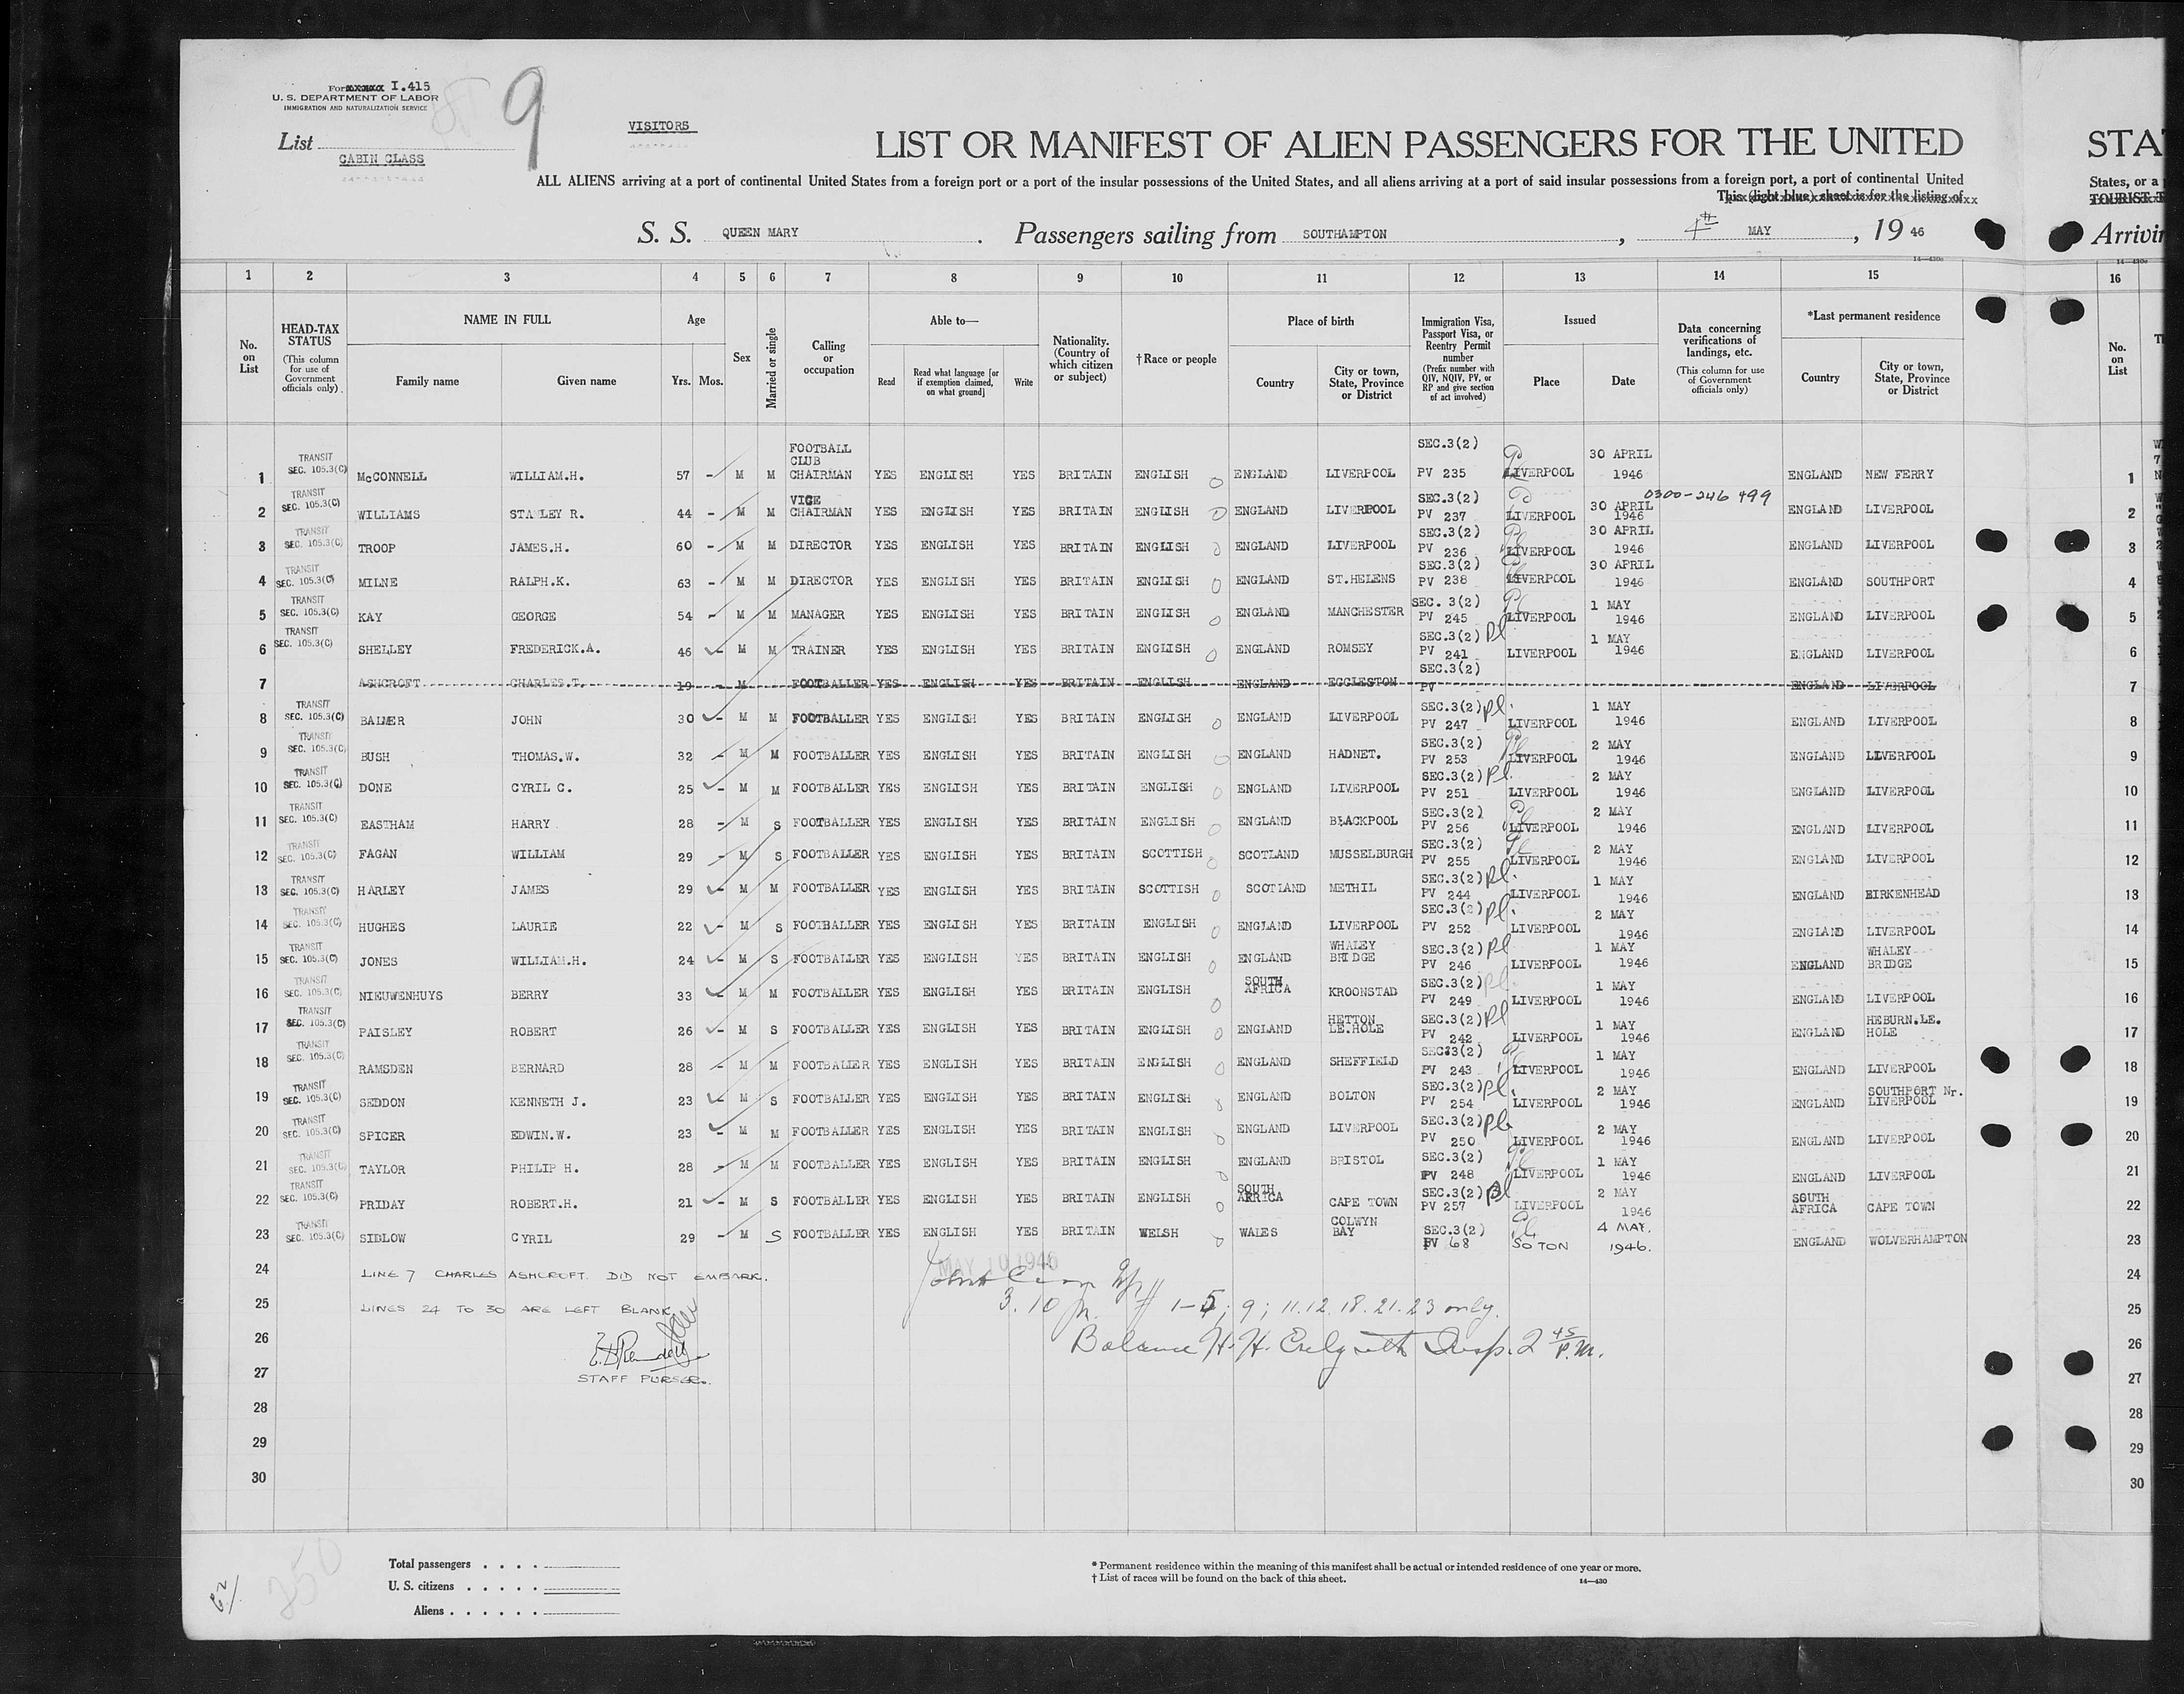 Form I.415
U. S. DEPARTMENT OF LABOR
IMMIGRATION AND NATURALIZATION SERVICE
List 9
CABIN CLASS
VISITORS
LIST OR MANIFEST OF ALIEN PASSENGERS FOR THE UNITED
STA
ALL ALIENS arriving at a port of continental United States from a foreign port or a port of the insular possessions of the United States, and all aliens arriving at a port of said insular possessions from a foreign port, a port of continental United
States, or a
This (light blue) sheet is for the listing of
TOURIST
S. S. QUEEN MARY. Passengers sailing from SOUTHAMPTON, MAY, 19 46
Arrivin
14—430c
1 2 3 4 5 6 7 8 9 10 11 12 13 14 15 16
No. on List
HEAD-TAX STATUS (This column for use of Government officials only).
NAME IN FULL
Family name Given name
Age
Yrs. Mos.
Sex
Married or single
Calling or occupation
Able to—
Read Read what language [or if exemption claimed, on what ground] Write
Nationality. (Country of which citizen or subject)
†Race or people
Place of birth
Country City or town, State, Province or District
Immigration Visa, Passport Visa, or Reentry Permit number (Prefix number with QIV, NQIV, PV, or RP and give section of act involved)
Issued
Place Date
Data concerning verifications of landings, etc. (This column for use of Government officials only)
*Last permanent residence
Country City or town, State, Province or District
No. on List
1 TRANSIT SEC. 105.3(C) McCONNELL WILLIAM.H. 57 - M M FOOTBALL CLUB CHAIRMAN YES ENGLISH YES BRITAIN ENGLISH ENGLAND LIVERPOOL SEC.3(2) PV 235 LIVERPOOL 30 APRIL 1946 ENGLAND NEW FERRY 1
2 TRANSIT SEC. 105.3(C) WILLIAMS STANLEY R. 44 - M M VICE CHAIRMAN YES ENGLISH YES BRITAIN ENGLISH ENGLAND LIVERPOOL SEC.3(2) PV 237 LIVERPOOL 30 APRIL 1946 0300-246 499 ENGLAND LIVERPOOL 2
3 TRANSIT SEC. 105.3(C) TROOP JAMES.H. 60 - M M DIRECTOR YES ENGLISH YES BRITAIN ENGLISH ENGLAND LIVERPOOL SEC.3(2) PV 236 LIVERPOOL 30 APRIL 1946 ENGLAND LIVERPOOL 3
4 TRANSIT SEC. 105.3(C) MILNE RALPH.K. 63 - M M DIRECTOR YES ENGLISH YES BRITAIN ENGLISH ENGLAND ST.HELENS SEC.3(2) PV 238 LIVERPOOL 30 APRIL 1946 ENGLAND SOUTHPORT 4
5 TRANSIT SEC. 105.3(C) KAY GEORGE 54 - M M MANAGER YES ENGLISH YES BRITAIN ENGLISH ENGLAND MANCHESTER SEC. 3(2) PV 245 LIVERPOOL 1 MAY 1946 ENGLAND LIVERPOOL 5
6 TRANSIT SEC. 105.3(C) SHELLEY FREDERICK.A. 46 - M M TRAINER YES ENGLISH YES BRITAIN ENGLISH ENGLAND ROMSEY SEC.3(2) PV 241 LIVERPOOL 1 MAY 1946 ENGLAND LIVERPOOL 6
7 ASHCROFT CHARLES.T. 19 - M FOOTBALLER YES ENGLISH YES BRITAIN ENGLISH ENGLAND ECCLESTON SEC.3(2) PV ENGLAND LIVERPOOL 7
8 TRANSIT SEC. 105.3(C) BALMER JOHN 30 - M M FOOTBALLER YES ENGLISH YES BRITAIN ENGLISH ENGLAND LIVERPOOL SEC.3(2) PV 247 LIVERPOOL 1 MAY 1946 ENGLAND LIVERPOOL 8
9 TRANSIT SEC. 105.3(C) BUSH THOMAS.W. 32 - M M FOOTBALLER YES ENGLISH YES BRITAIN ENGLISH ENGLAND HADNET. SEC.3(2) PV 253 LIVERPOOL 2 MAY 1946 ENGLAND LIVERPOOL 9
10 TRANSIT SEC. 105.3(C) DONE CYRIL C. 25 - M M FOOTBALLER YES ENGLISH YES BRITAIN ENGLISH ENGLAND LIVERPOOL SEC.3(2) PV 251 LIVERPOOL 2 MAY 1946 ENGLAND LIVERPOOL 10
11 TRANSIT SEC. 105.3(C) EASTHAM HARRY 28 - M S FOOTBALLER YES ENGLISH YES BRITAIN ENGLISH ENGLAND BLACKPOOL SEC.3(2) PV 256 LIVERPOOL 2 MAY 1946 ENGLAND LIVERPOOL 11
12 TRANSIT SEC. 105.3(C) FAGAN WILLIAM 29 - M S FOOTBALLER YES ENGLISH YES BRITAIN SCOTTISH SCOTLAND MUSSELBURGH SEC.3(2) PV 255 LIVERPOOL 2 MAY 1946 ENGLAND LIVERPOOL 12
13 TRANSIT SEC. 105.3(C) HARLEY JAMES 29 - M M FOOTBALLER YES ENGLISH YES BRITAIN SCOTTISH SCOTLAND METHIL SEC.3(2) PV 244 LIVERPOOL 1 MAY 1946 ENGLAND BIRKENHEAD 13
14 TRANSIT SEC. 105.3(C) HUGHES LAURIE 22 - M S FOOTBALLER YES ENGLISH YES BRITAIN ENGLISH ENGLAND LIVERPOOL SEC.3(2) PV 252 LIVERPOOL 2 MAY 1946 ENGLAND LIVERPOOL 14
15 TRANSIT SEC. 105.3(C) JONES WILLIAM.H. 24 - M S FOOTBALLER YES ENGLISH YES BRITAIN ENGLISH ENGLAND WHALEY BRIDGE SEC.3(2) PV 246 LIVERPOOL 1 MAY 1946 ENGLAND WHALEY BRIDGE 15
16 TRANSIT SEC. 105.3(C) NIEUWENHUYS BERRY 33 - M M FOOTBALLER YES ENGLISH YES BRITAIN ENGLISH SOUTH AFRICA KROONSTAD SEC.3(2) PV 249 LIVERPOOL 1 MAY 1946 ENGLAND LIVERPOOL 16
17 TRANSIT SEC. 105.3(C) PAISLEY ROBERT 26 - M S FOOTBALLER YES ENGLISH YES BRITAIN ENGLISH ENGLAND HETTON LE.HOLE SEC.3(2) PV 242 LIVERPOOL 1 MAY 1946 ENGLAND HEBURN.LE. HOLE 17
18 TRANSIT SEC. 105.3(C) RAMSDEN BERNARD 28 - M M FOOTBALLER YES ENGLISH YES BRITAIN ENGLISH ENGLAND SHEFFIELD SEC.3(2) PV 243 LIVERPOOL 1 MAY 1946 ENGLAND LIVERPOOL 18
19 TRANSIT SEC. 105.3(C) SEDDON KENNETH J. 23 - M S FOOTBALLER YES ENGLISH YES BRITAIN ENGLISH ENGLAND BOLTON SEC.3(2) PV 254 LIVERPOOL 2 MAY 1946 ENGLAND SOUTHPORT Nr. LIVERPOOL 19
20 TRANSIT SEC. 105.3(C) SPICER EDWIN.W. 23 - M M FOOTBALLER YES ENGLISH YES BRITAIN ENGLISH ENGLAND LIVERPOOL SEC.3(2) PV 250 LIVERPOOL 2 MAY 1946 ENGLAND LIVERPOOL 20
21 TRANSIT SEC. 105.3(C) TAYLOR PHILIP H. 28 - M M FOOTBALLER YES ENGLISH YES BRITAIN ENGLISH ENGLAND BRISTOL SEC.3(2) PV 248 LIVERPOOL 1 MAY 1946 ENGLAND LIVERPOOL 21
22 TRANSIT SEC. 105.3(C) PRIDAY ROBERT.H. 21 - M S FOOTBALLER YES ENGLISH YES BRITAIN ENGLISH SOUTH AFRICA CAPE TOWN SEC.3(2) PV 257 LIVERPOOL 2 MAY 1946 SOUTH AFRICA CAPE TOWN 22
23 TRANSIT SEC. 105.3(C) SIDLOW CYRIL 29 - M S FOOTBALLER YES ENGLISH YES BRITAIN WELSH WALES COLWYN BAY SEC.3(2) PV 68 SO TON 4 MAY. 1946. ENGLAND WOLVERHAMPTON 23
24 LINE 7 CHARLES ASHCROFT DID NOT EMBARK. MAY 10 1946 24
25 LINES 24 TO 30 ARE LEFT BLANK 3.10 1-5; 9; 11.12.18.21.23 only. 25
26 Balance H.H. 2 45 P.M. 26
27 STAFF PURSER. 27
28 28
29 29
30 30
Total passengers . . . .
U. S. citizens . . . . .
Aliens . . . . . .
* Permanent residence within the meaning of this manifest shall be actual or intended residence of one year or more.
† List of races will be found on the back of this sheet.
14—430
350